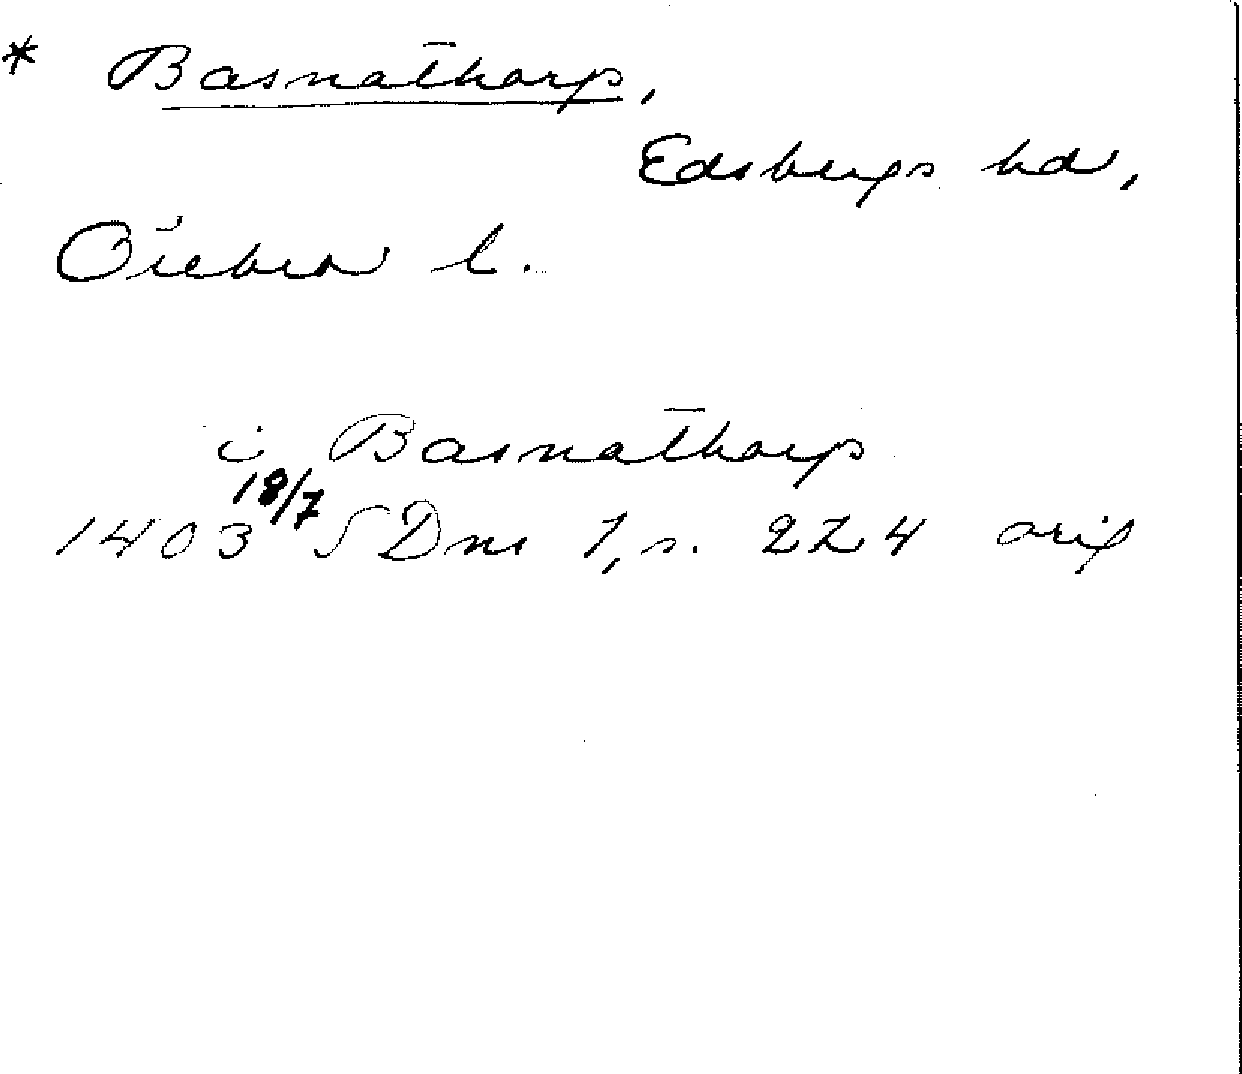 * Basnathorp,
Edsbergs hd,
Örebro l.
i Basnathorp
1403 18/7 SDns 1, s. 224 orig